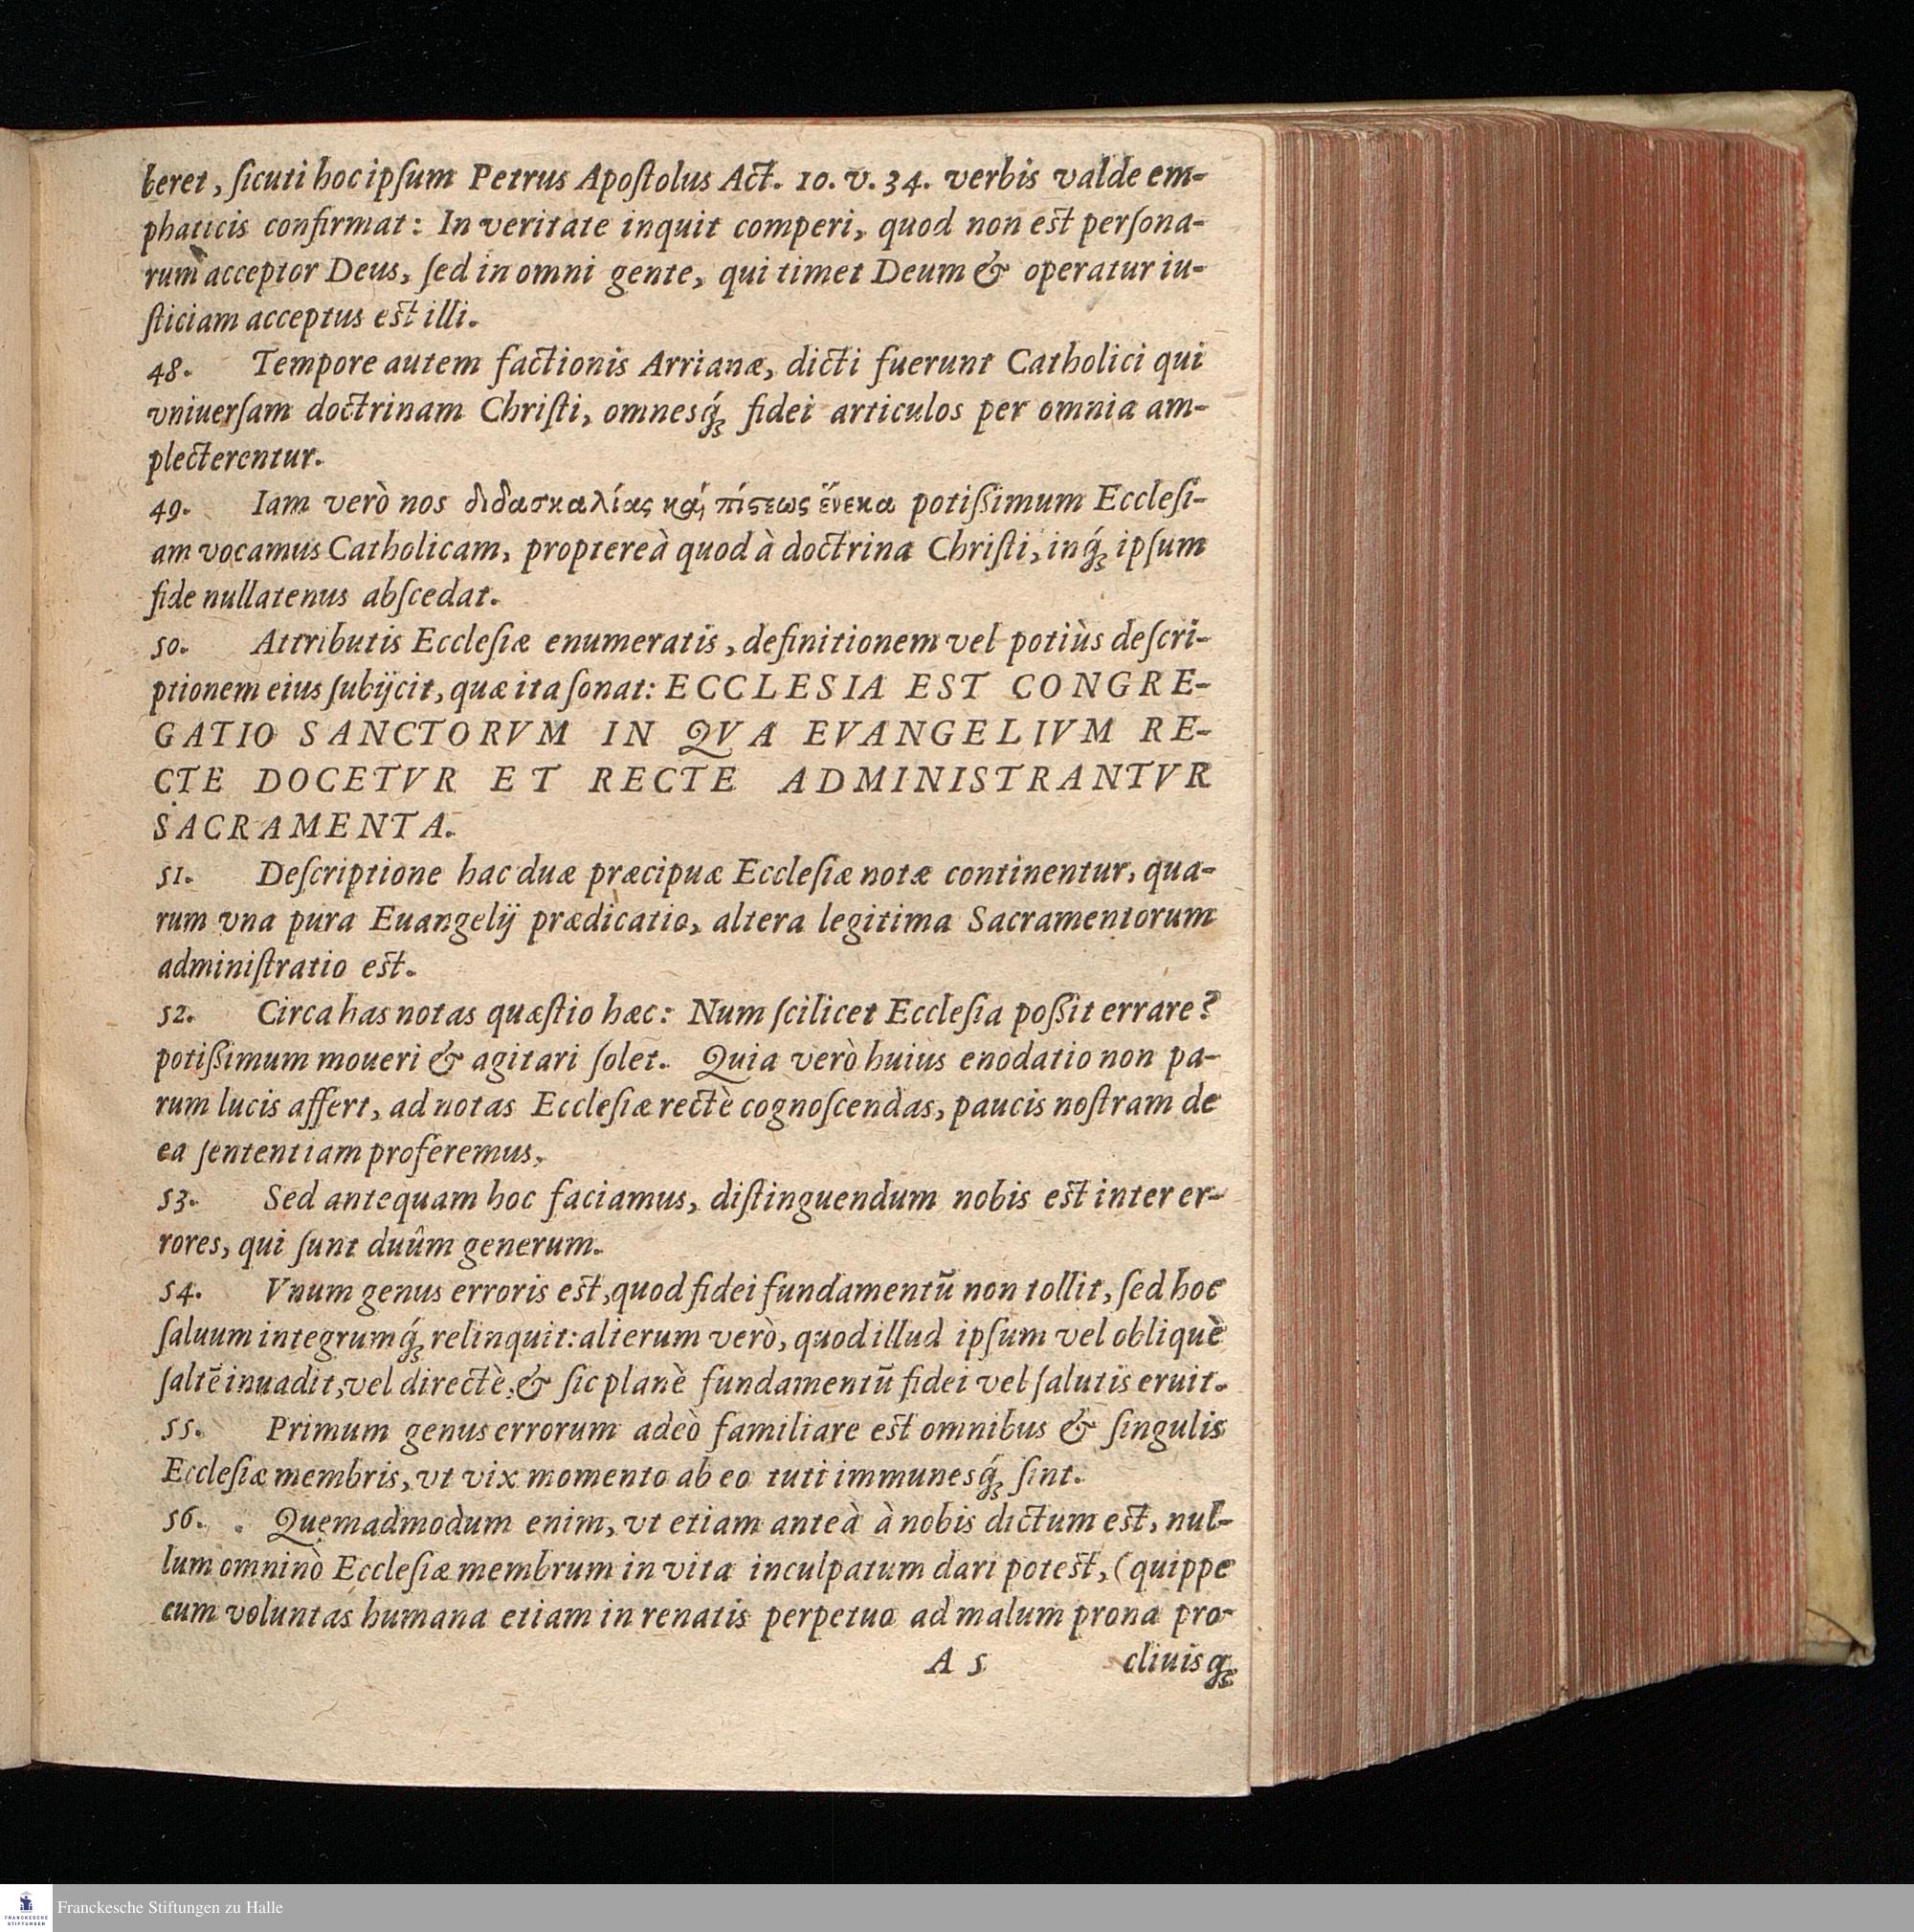 beret, ſicuti hoc ipſum Petrus Apoſtolus Act. 10. v. 34. verbis valde em-
phaticis confirmat: In veritate inquit comperi, quod non est perſona-
rum acceptor Deus, ſed in omni gente, qui timet Deum & operatur iu-
ſticiam acceptus est illi.
48. Tempore autem factionis Arrianæ, dicti fuerunt Catholici qui
vniuerſam doctrinam Chriſti, omnesq́ꝫ fidei articulos per omnia am-
plecterentur.
49. Iam verò nos διδασκαλίας κάι πίϛεως ἕνεκα potiſſimum Eccleſi-
am vocamus Catholicam, proptereà quod à doctrina Chriſti, inq́ꝫ ipſum
fide nullatenus abſcedat.
50. Attributis Eccleſiæ enumeratis, definitionem vel potiùs deſcri-
ptionem eius ſubijcit, quæ ita ſonat: ECCLESIA EST CONGRE-
GATIO SANCTORVM IN QVA EVANGELIVM RE-
CTE DOCETVR ET RECTE ADMINISTRANTVR
SACRAMENTA.
51. Deſcriptione hac duæ præcipuæ Eccleſiæ notæ continentur, qua-
rum vna pura Euangelij prædicatio, altera legitima Sacramentorum
adminiſtratio est.
52. Circa has notas quæſtio hæc: Num ſcilicet Eccleſia poſſit errare?
potiſſimum moueri & agitari ſolet. Quia verò huius enodatio non pa-
rum lucis affert, ad notas Eccleſiæ rectè cognoſcendas, paucis noſtram de
ea ſententiam proferemus.
53. Sed antequam hoc faciamus, diſtinguendum nobis est inter er-
rores, qui ſunt duûm generum.
54. Vnum genus erroris est, quod fidei fundamentũ non tollit, ſed hoc
ſaluum integrumq́ꝫ relinquit: alterum verò, quod illud ipſum vel obliquè
ſaltẽ inuadit, vel directè, & ſic planè fundamentũ fidei vel ſalutis eruit.
55. Primum genus errorum adeò familiare est omnibus & ſingulis
Eccleſiæ membris, vt vix momento ab eo tuti immunesq́ꝫ ſint.
56. Quemadmodùm enim, vt etiam anteà à nobis dictum est, nul-
lum omninò Eccleſiæ membrum in vita inculpatum dari potest, (quippe
cum voluntas humana etiam in renatis perpetuo ad malum prona pro-
A 5 cliuisqꝫ
Franckesche Stiftungen zu Halle